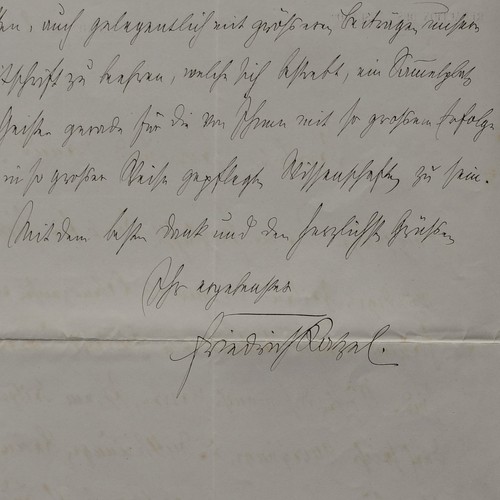 ten, auch gelegentlich mit größeren Beiträgen unsere
itschrift zu beehren, welche sich bestrebt, ein Sammelplatz
Geister gerade für die von Ihnen mit so großem Erfolge
in so großer Weise gepflegten Wissenschaften zu sein.
Mit dem besten Dank und den herzlichsten Grüßen
Ihr ergebenster
Friedrich Ratzel.